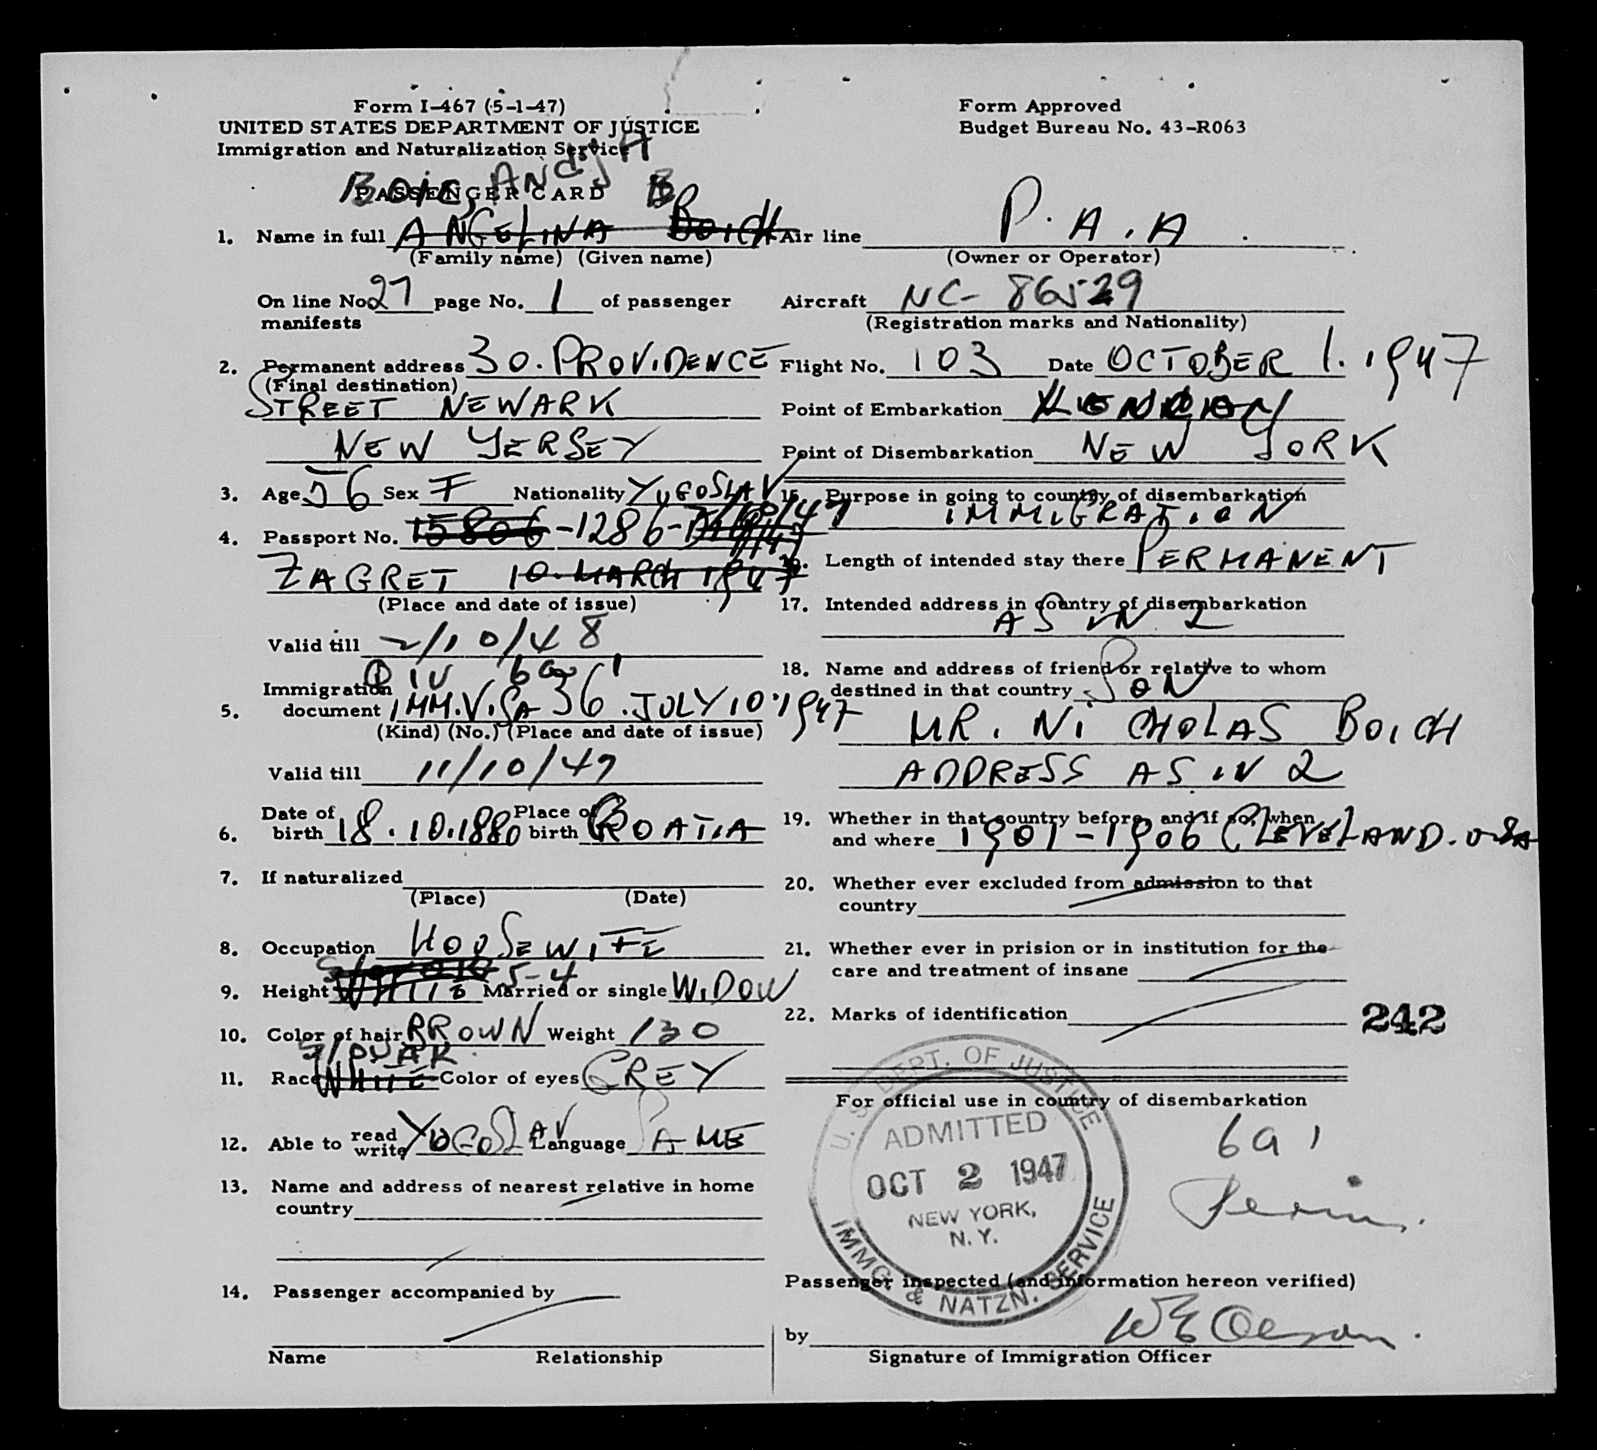 Form I-467 (5-1-47)
UNITED STATES DEPARTMENT OF JUSTICE
Immigration and Naturalization Service
PASSENGER CARD
1. Name in full ANGELINA BOICH
(Family name) (Given name)
On line No. 27 page No. 1 of passenger
manifests
2. Permanent address 30. PROVIDENCE
(Final destination)
STREET NEWARK
NEW YERSEY
3. Age 56 Sex F Nationality YUGOSLAV
4. Passport No. 15806 -1286-
ZAGRET 10. MARCH 1947
(Place and date of issue)
Valid till 2/10/48
Immigration
5. document IMM. VISA 36. JULY 10. 1947
(Kind) (No.) (Place and date of issue)
Valid till 11/10/47
6. Date of birth 18.10.1880 Place of birth CROATIA
7. If naturalized
(Place) (Date)
8. Occupation HOUSEWIFE
5-4
9. Height Married or single WIDOW
10. Color of hair BROWN Weight 130
11. Race WHITE Color of eyes GREY
12. Able to read write YUGOSLAV Language SAME
13. Name and address of nearest relative in home
country
14. Passenger accompanied by
Name Relationship
Form Approved
Budget Bureau No. 43-R063
Air line P.A.A
(Owner or Operator)
Aircraft NC- 86529
(Registration marks and Nationality)
Flight No. 103 Date OCTOBER 1. 1947
Point of Embarkation LONDON
Point of Disembarkation NEW YORK
15. Purpose in going to country of disembarkation
IMMIGRATION
16. Length of intended stay there PERMANENT
17. Intended address in country of disembarkation
AS IN 2
18. Name and address of friend or relative to whom
destined in that country SON
MR. NICHOLAS BOICH
ADDRESS AS IN 2
19. Whether in that country before, and if so, when
and where 1901-1906 CLEVELAND. USA
20. Whether ever excluded from admission to that
country
21. Whether ever in prision or in institution for the
care and treatment of insane
22. Marks of identification
242
For official use in country of disembarkation
U. S. DEPT. OF JUSTICE
ADMITTED
OCT 2 1947
NEW YORK,
N. Y.
IMMG. & NATZN. SERVICE
Passenger inspected (and information hereon verified)
by
Signature of Immigration Officer